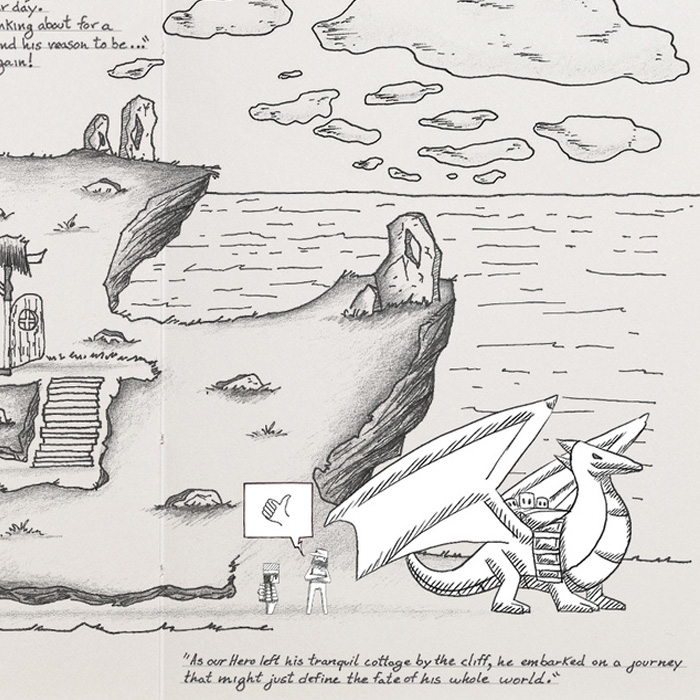 r day.
nking about for a
nd his reason to be..."
gain!
"As our Hero left his tranquil cottage by the cliff, he embarked on a journey
that might just define the fate of his whole world."